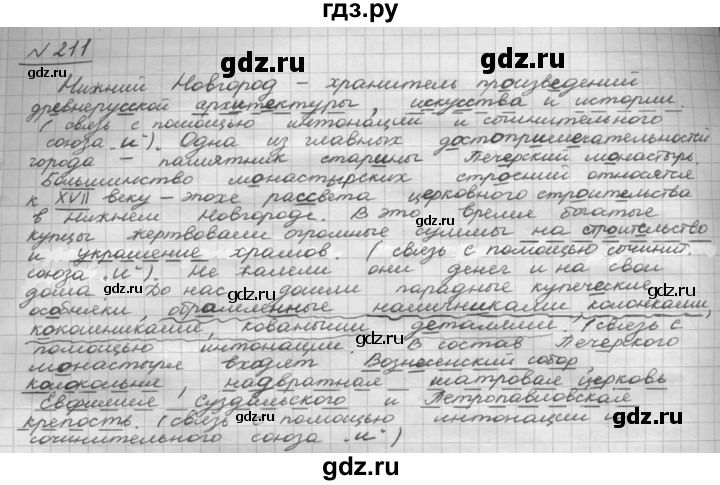 гдз.ру
№ 211
Нижний Новгород – хранитель произведений
древнерусской архитектуры, искусства и истории.
(связь с помощью интонации и сочинительного
союза „и“). Одна из главных достопримечательностей
города – памятник старины Печерский монастырь.
Большинство монастырских строений относятся
к XVII веку – эпохе рассвета церковного строительства
в Нижнем Новгороде. В это время богатые
купцы жертвовали огромные суммы на строительство
и украшение храмов. (связь с помощью сочинит.
союза „и“). Не жалели они денег и на свои
дома. До нас дошли парадные купеческие
особняки, обрамлённые наличниками, колонками,
кокошниками, коваными деталями. (связь с
помощью интонации. В состав Печерского
монастыря входят Вознесенский собор,
колокольня, надвратная шатровая церковь
Евфимия Суздальского и Петропавловская
крепость. (связь с помощью интонации и
сочинительного союза „и“)
gdz.ru
gdz.ru
gdz.ru
gdz.ru
gdz.ru
gdz.ru
gdz.ru
gdz.ru
gdz.ru
gdz.ru
gdz.ru
gdz.ru
gdz.ru